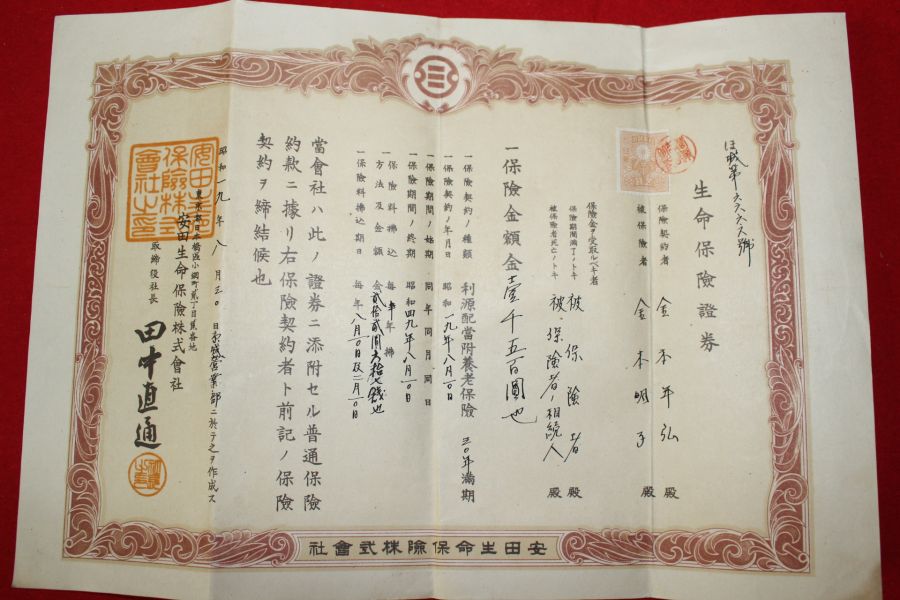 生命保險證券
保險契約者 金本年弘 殿
被保險者 金本明子 殿
保險金ヲ受取ルベキ者
保險期間滿了ノトキ 被保險者 殿
被保險者死亡ノトキ 被保險者ノ相續人 殿
一保險金額金壹千五百圓也
一保險契約ノ種類 利源配當附養老保險 三〇年滿期
一保險契約ノ年月日 昭和一九年八月一〇日
一保險期間ノ始期 同年同月同日
一保險期間ノ終期 昭和四九年八月一〇日
一保險料拂込方法及金額 每半年拂 金貳拾貳圓六拾七錢也
一保險料拂込期日 每年八月一〇日及二月一〇日
當會社ハ此ノ證券ニ添附セル普通保險
約款ニ據リ右保險契約者ト前記ノ保險
契約ヲ締結候也
昭和一九年八月三〇日京城營業部ニ於テ之ヲ作成ス
東京都日本橋區小網町貳丁目貳番地
安田生命保險株式會社
取締役社長 田中直通
安田生命保險株式會社之印
社會式株險保命生田安